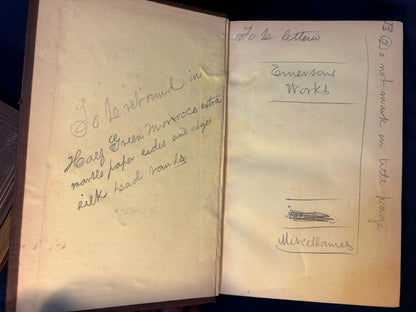 To be rebound in
Half Green Morocco extra
marble paper sides and edges
silk head bands
To be lettered
Emersons
Works
Miscellanies
Do not mark on title page